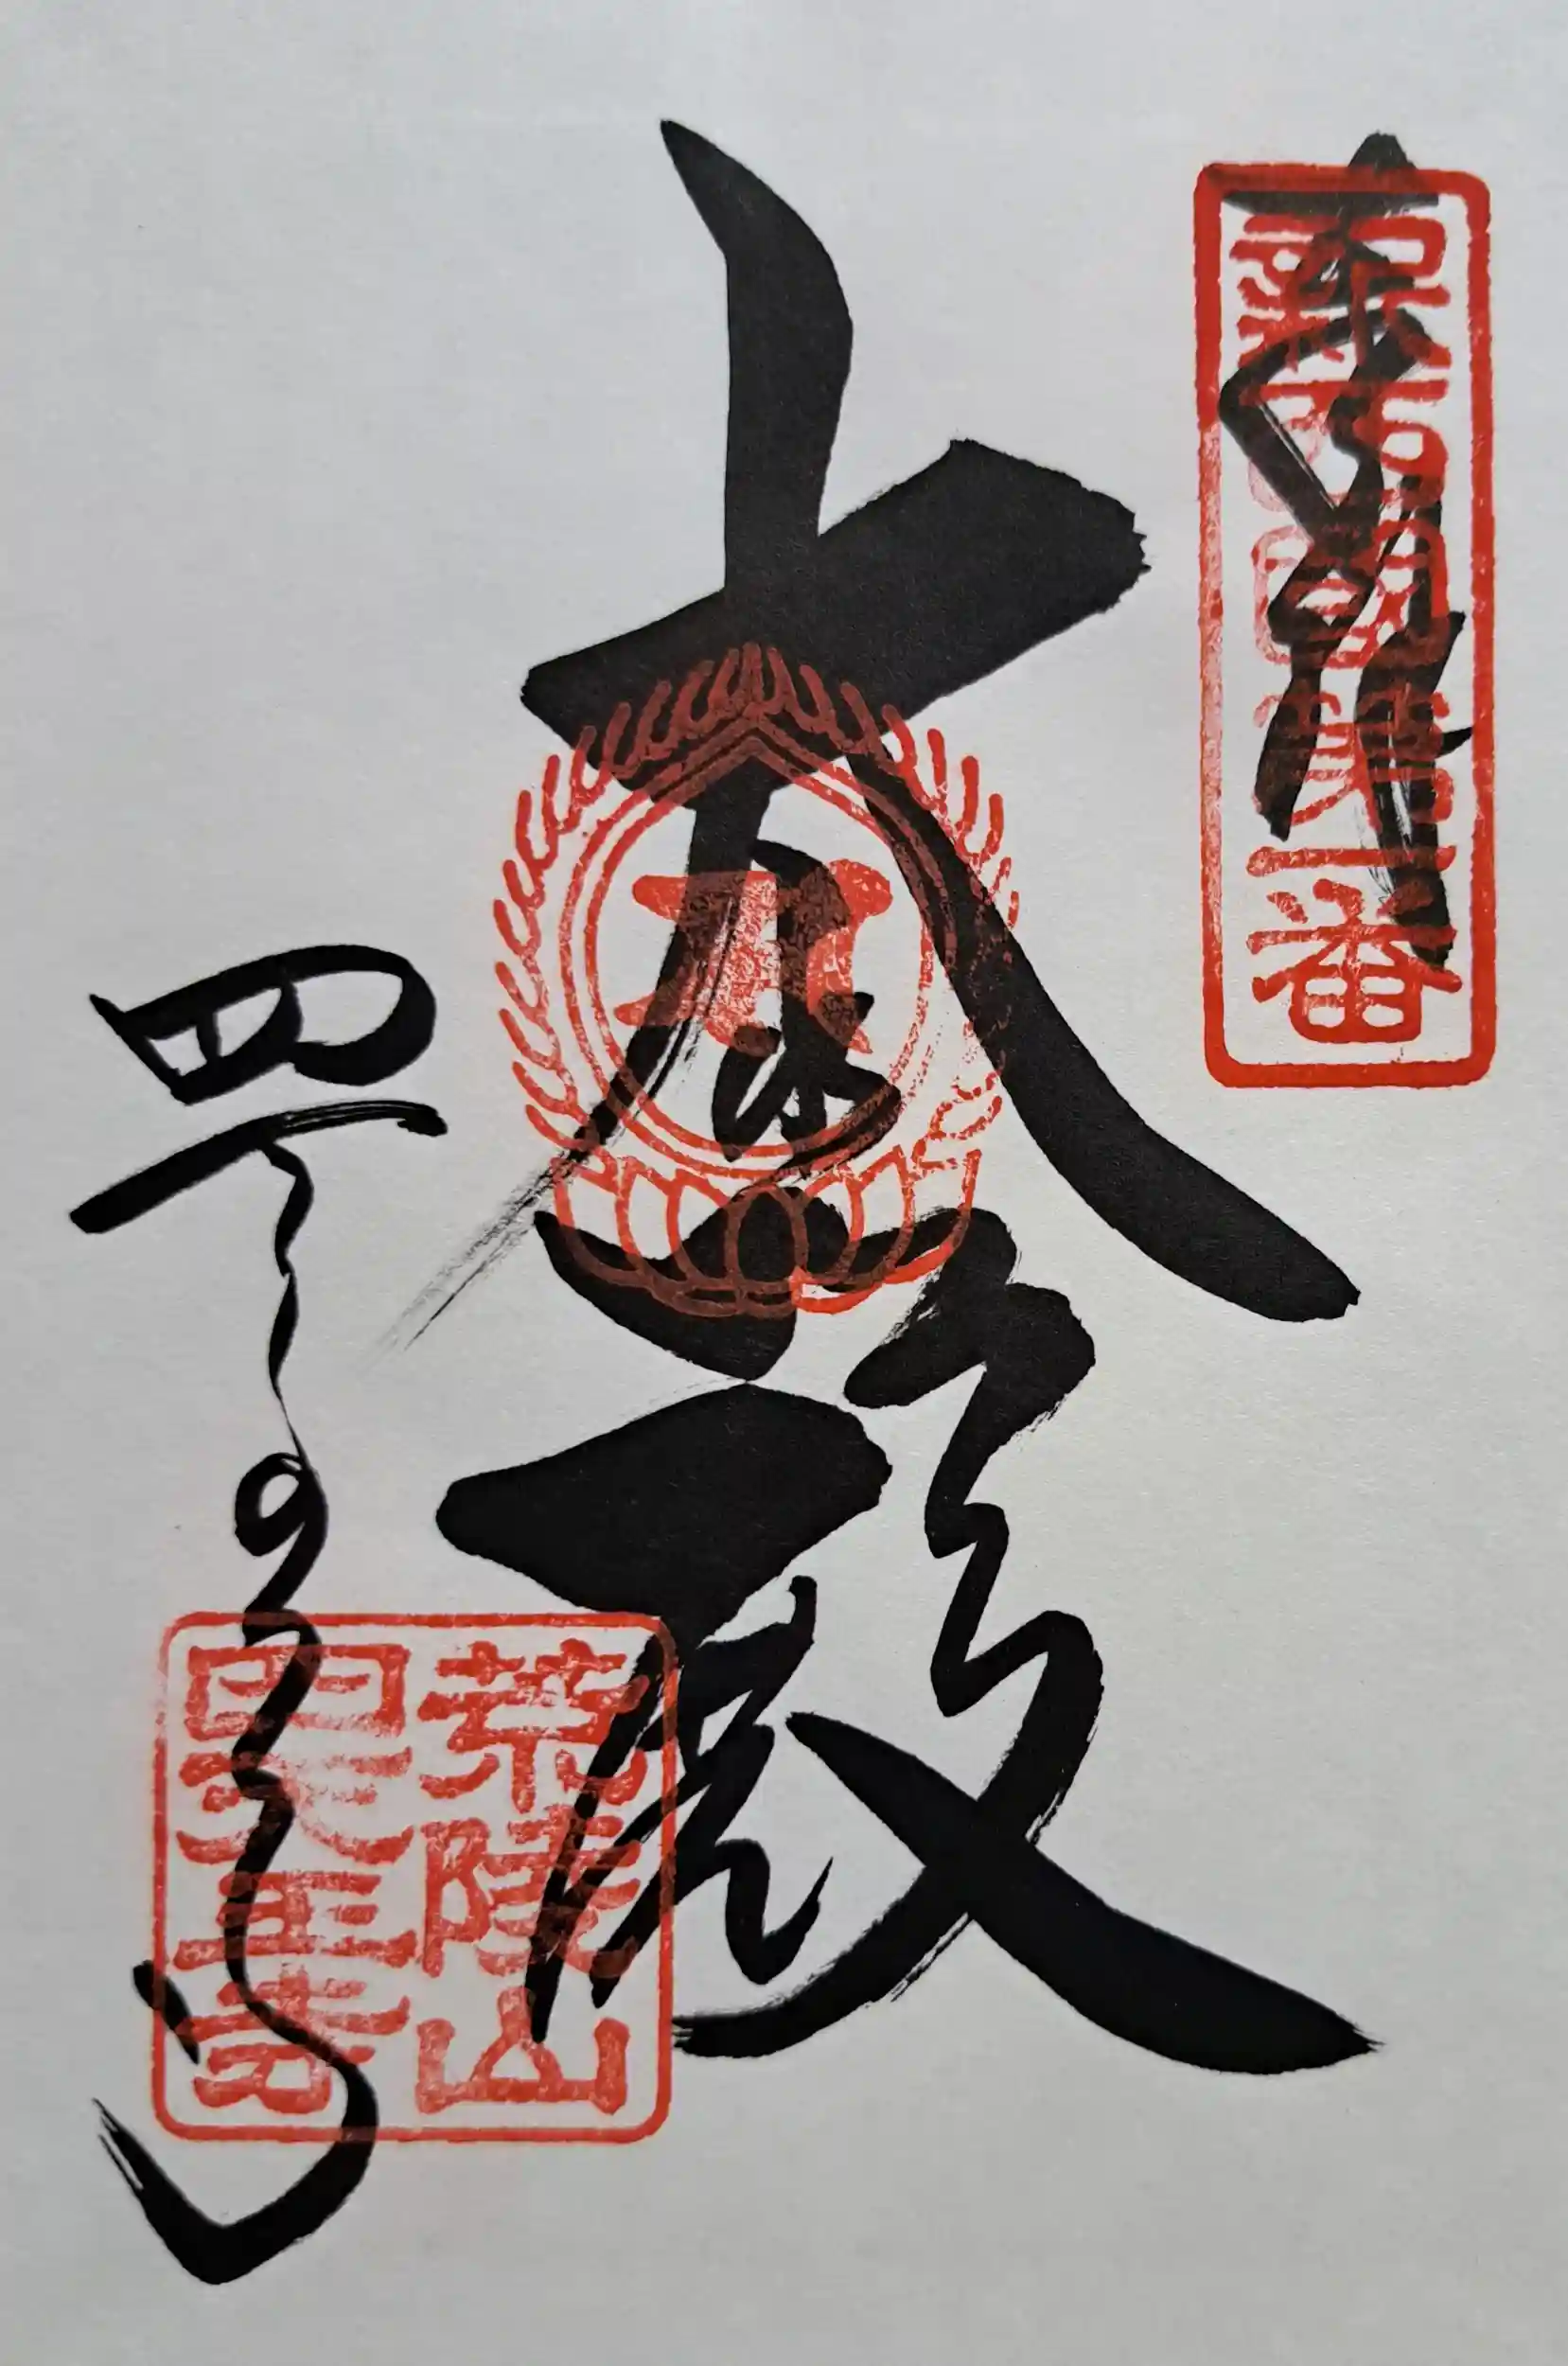 奉拝
新西國第一番
大悲殿
四天王寺
荒陵山
四天王寺